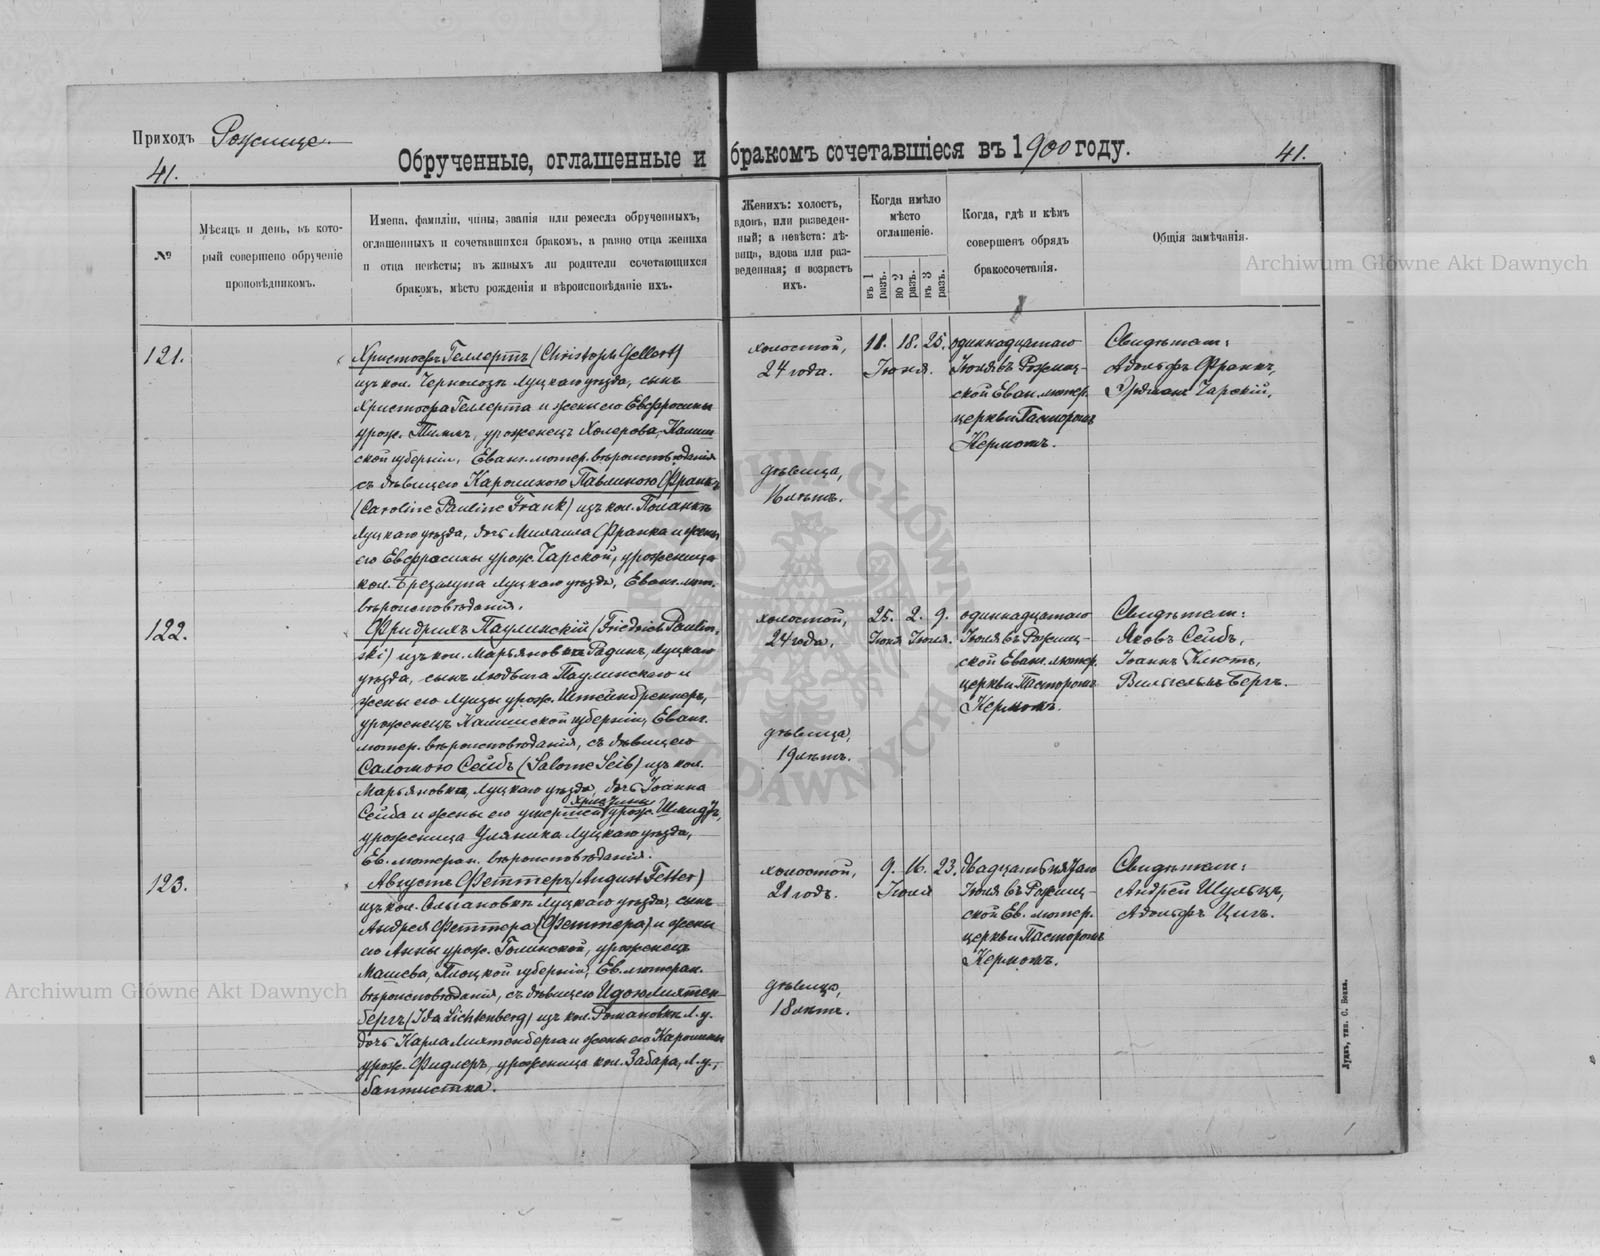 Приходъ Рожище
41.
Обрученные, оглашенные и бракомъ сочетавшіеся въ 1900 году.
41.
№
Мѣсяцъ и день, въ кото-
рый совершено обрученіе
проповѣдникомъ.
Имена, фамиліи, чины, званія или ремесла обрученныхъ,
оглашенныхъ и сочетавшихся бракомъ, а равно отца жениха
и отца невѣсты; въ живыхъ ли родители сочетающихся
бракомъ, мѣсто рожденія и вѣроисповѣданіе ихъ.
Женихъ: холостъ,
вдовъ, или разведен-
ный; а невѣста: дѣ-
вица, вдова или раз-
веденная; и возрастъ
ихъ.
Когда имѣло
мѣсто
оглашеніе.
въ 1
разъ.
во 2
разъ.
въ 3
разъ.
Когда, гдѣ и кѣмъ
совершенъ обрядъ
бракосочетанія.
Общія замѣчанія.
121.
Христофъ Геллертъ (Christoph Gellert)
изъ кол. Чернолозъ Луцкаго уѣзда, сынъ
Христофа Геллерта и жены его Евфросины
урож. Тимлъ, уроженецъ Холерова, Калиш
ской губерніи, Еванг. лютер. вѣроисповѣданія
съ дѣвицею Каролиною Павлиною Франкъ
(Caroline Pauline Frank) изъ кол. Поланка
Луцкаго уѣзда, дочь Михаила Франка и жены
его Евфросины урож. Чарской, уроженица
кол. Брезалупа Луцкаго уѣзда, Еванг. лют.
вѣроисповѣданія.
холостой,
24 года.
дѣвица,
16 лѣтъ.
11. 18. 25.
Іюня.
одиннадцатаго
Іюля въ Рожищ-
ской Еван. лютер.
церкви Пасторомъ
Кермомъ.
Свидѣтели:
Адольфъ Франкъ,
Эрдманъ Чарскій.
122.
Фридрихъ Паулинскій (Friedrich Paulin-
ski) изъ кол. Марьяновка Радин, Луцкаго
уѣзда, сынъ Людвига Паулинскаго и
жены его Луизы урож. Штейнбреннеръ,
уроженецъ Калишской губерніи, Еванг.
лютер. вѣроисповѣданія, съ дѣвицею
Саломою Сейбъ (Salome Seib) изъ кол.
Марьяновка, Луцкаго уѣзда, дочь Іоанна
Сейба и жены его умершей урож. Шмидтъ,
уроженица Уляника Луцкаго уѣзда,
Ев. лютеран. вѣроисповѣданія.
холостой,
24 года,
дѣвица,
19 лѣтъ.
25. 2. 9.
Іюня Іюля.
одиннадцатаго
Іюля въ Рожищ-
ской Еванг. лютер.
церкви Пасторомъ
Кермомъ.
Свидѣтели:
Яковъ Сейбъ,
Іоаннъ Клютъ,
Вильгельмъ Бергъ.
123.
Августъ Феттеръ (August Fetter)
изъ кол. Ольгановка Луцкаго уѣзда, сынъ
Андрея Феттера (Феттера) и жены
его Анны урож. Голинской, уроженецъ
Машева, Плоцкой губерніи, Ев. лютеран.
вѣроисповѣданія, съ дѣвицею Идою Лихтен-
бергъ (Ida Lichtenberg) изъ кол. Романовка Л. у.
дочь Карла Лихтенберга и жены его Каролины
урож. Фидлеръ, уроженица кол. Забара, Л. у.,
баптистка.
холостой,
21 годъ.
дѣвица,
18 лѣтъ.
9. 16. 23.
Іюля
двадцать пятаго
Іюля въ Рожищ-
ской Ев. лютер.
церкви Пасторомъ
Кермомъ.
Свидѣтели:
Андрей Шульцъ,
Адольфъ Цигъ.
Луцкъ, тип. С. Бокка.
Archiwum Główne Akt Dawnych
Archiwum Główne Akt Dawnych